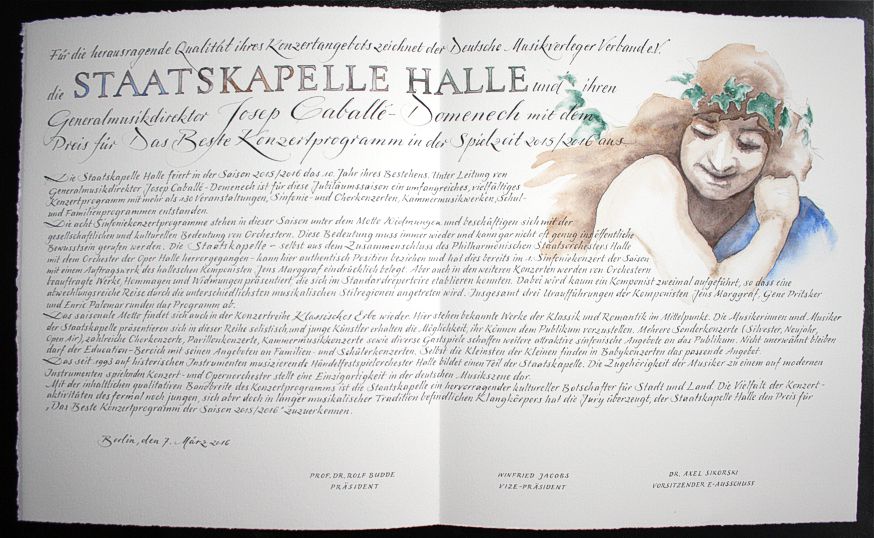 Für die herausragende Qualität ihres Konzertangebots zeichnet der Deutsche Musikverleger Verband e.V.
die STAATSKAPELLE HALLE und ihren
Generalmusikdirektor Josep Caballé-Domenech mit dem
Preis für Das Beste Konzertprogramm in der Spielzeit 2015/2016 aus
Die Staatskapelle Halle feiert in der Saison 2015/2016 das 10. Jahr ihres Bestehens. Unter Leitung von
Generalmusikdirektor Josep Caballé-Domenech ist für diese Jubiläumssaison ein umfangreiches, vielfältiges
Konzertprogramm mit mehr als 130 Veranstaltungen, Sinfonie- und Chorkonzerten, Kammermusikwerken, Schul-
und Familienprogrammen entstanden.
Die acht Sinfoniekonzertprogramme stehen in dieser Saison unter dem Motto Widmungen und beschäftigen sich mit der
gesellschaftlichen und kulturellen Bedeutung von Orchestern. Diese Bedeutung muss immer wieder und kann gar nicht oft genug ins öffentliche
Bewusstsein gerufen werden. Die Staatskapelle – selbst aus dem Zusammenschluss des Philharmonischen Staatsorchesters Halle
mit dem Orchester der Oper Halle hervorgegangen – kann hier authentisch Position beziehen und hat dies bereits im 1. Sinfoniekonzert der Saison
mit einem Auftragswerk des halleschen Komponisten Jens Marggraf eindrücklich belegt. Aber auch in den weiteren Konzerten werden von Orchestern
beauftragte Werke, Hommagen und Widmungen präsentiert, die sich im Standardrepertoire etablieren konnten. Dabei wird kaum ein Komponist zweimal aufgeführt, so dass eine
abwechslungsreiche Reise durch die unterschiedlichsten musikalischen Stilregionen angetreten wird. Insgesamt drei Uraufführungen der Komponisten Jens Marggraf, Gene Pritsker
und Enric Palomar runden das Programm ab.
Das saisonale Motto findet sich auch in der Konzertreihe Klassisches Erbe wieder. Hier stehen bekannte Werke der Klassik und Romantik im Mittelpunkt. Die Musikerinnen und Musiker
der Staatskapelle präsentieren sich in dieser Reihe solistisch, und junge Künstler erhalten die Möglichkeit, ihr Können dem Publikum vorzustellen. Mehrere Sonderkonzerte (Silvester, Neujahr,
Open Air), zahlreiche Chorkonzerte, Pavillonkonzerte, Kammermusikkonzerte sowie diverse Gastspiele schaffen weitere attraktive sinfonische Angebote an das Publikum. Nicht unerwähnt bleiben
darf der Education-Bereich mit seinen Angeboten an Familien- und Schülerkonzerten. Selbst die Kleinsten der Kleinen finden in Babykonzerten das passende Angebot.
Das seit 1993 auf historischen Instrumenten musizierende Händelfestspielorchester Halle bildet einen Teil der Staatskapelle. Die Zugehörigkeit der Musiker zu einem auf modernen
Instrumenten spielenden Konzert- und Opernorchester stellt eine Einzigartigkeit in der deutschen Musikszene dar.
Mit der inhaltlichen qualitativen Bandbreite des Konzertprogramms ist die Staatskapelle ein hervorragender kultureller Botschafter für Stadt und Land. Die Vielfalt der Konzert-
aktivitäten des formal noch jungen, sich aber doch in langer musikalischer Tradition befindlichen Klangkörpers hat die Jury überzeugt, der Staatskapelle Halle den Preis für
„Das Beste Konzertprogramm der Saison 2015/2016" zuzuerkennen.
Berlin, den 7. März 2016
PROF. DR. ROLF BUDDE
PRÄSIDENT
WINFRIED JACOBS
VIZE-PRÄSIDENT
DR. AXEL SIKORSKI
VORSITZENDER E-AUSSCHUSS